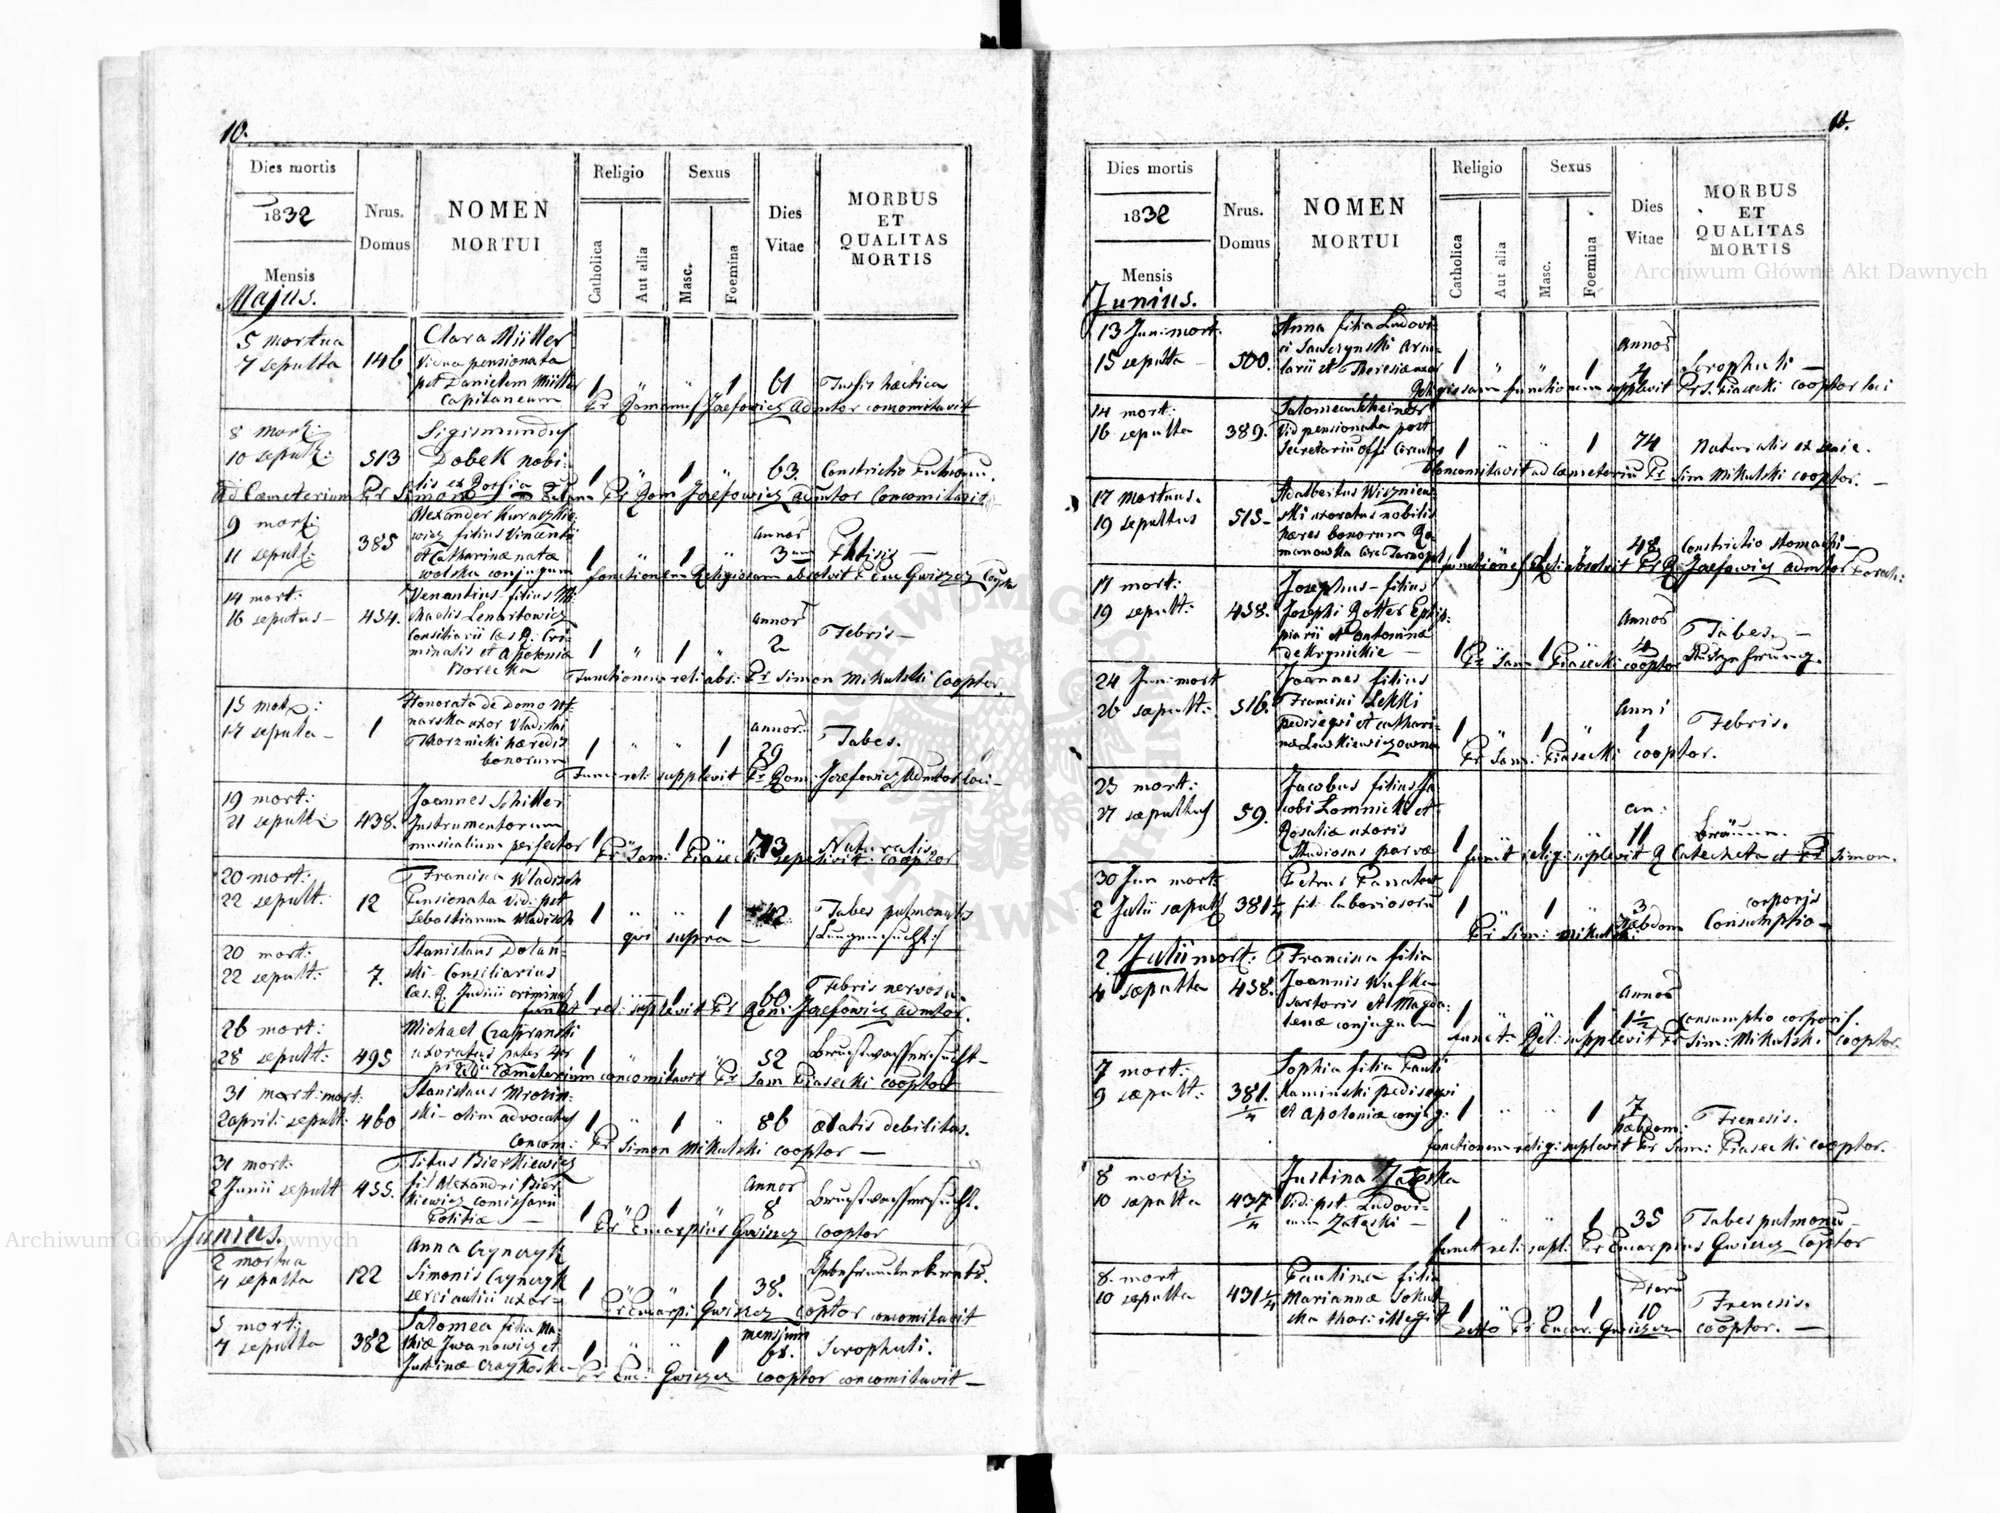 10.
Dies mortis
1832
Mensis
Majus.
Nrus.
Domus
NOMEN
MORTUI
Religio
Catholica
Aut alia
Sexus
Masc.
Foemina
Dies
Vitae
MORBUS
ET
QUALITAS
MORTIS
5 mortua
7 sepulta
146
Clara Müller
Vidua pensionata
pst Danielem Müller
Capitaneum
1 " " 1 61 Tussis hæctica
Pr Romanus Jozefowicz Admtor comomitavit
8 mort:
10 sepult:
513
Sigismundus
Dobek nobi:
1 " 1 " 63. Constrictio Pulmon.
Ad Cæmeterium Pr Simon Pr Rom Jozefowicz Admtor Concomitavit
9 mort:
11 sepult:
385
Alexander
wicz filius Vincentii
et Catharinæ natæ
wolska conjugum
Annor
1 " 1 " 3 Phtisis —
functionem Religiosam absolvit P Euc Gwiszcz Cooptor
14 mort:
16 seputus —
454.
Venantius filius Mi
chaelis Lenartowicz
Consiliarii Cæs R. Cri
minalis et Apolonia
Borecka
annor
1 " 1 " 2 Febris —
Functionem reli abs: Pr Simon Mikulski Cooptor
15 mort:
17 sepulta —
1
Honorata de Domo
narska uxor Vladislai
Thorznicki hæredis
bonorum
annor:
1 " " 1 29 Tabes.
Func reli supplevit Pr Rom: Jozefowicz Admtor loci —
19 mort:
21 sepult:
438.
Joannes Schiller
Instrumentorum
musicalium perfector
1 " 1 " 73 Naturalis
Pr Sam: Piasecki sepelivit cooptor
20 mort:
22 sepult:
12
Francisca Wladisch
Pensionata Vid: pst
Sebastianum Wladisch
1 " " 1 42. Tabes pulmonalis
qui supra — /Lungensucht:/
20 mort:
22 sepult:
7.
Stanislaus Dolan:
ski Consiliarius
Cæs. R. Judicii criminal
1 " 1 60 Febris nervosa.
funct rel: suplevit Pr Rom: Jozefowicz admtor.
26 mort:
28 sepult:
495
Michael Czapranski
uxoratus pater
1 " 1 " 52 Brustwassersucht —
Ad Cæmeterium concomitavit Pr Sam Piasecki cooptor
31 mort: mort:
2 aprili sepult:
460
Stanislaus Mrozin
ski — olim advocatus
1 " 1 " 86 ætatis debilitas.
Concom: Pr Simon Mikulski cooptor —
31 mort:
2 Junii sepult
455.
Titus Bierkiewicz
fil Alexandri Bier
kiewicz Comissarii
Politiæ —
Annor
1 " 1 " 8 Brustwassersucht.
Pr Eucarpius Gwiszcz cooptor
Junius.
2 mortua
4 sepulta
122
Anna Czynczyk
Simonis Czynczyk
uxor —
1 " " 1 38.
Pr Eucarpi: Gwiszcz cooptor concomitavit
5 mort:
7 sepulta
382
Salomea filia Ma
thiæ Jwanowicz et
Justinæ
mensium
1 " " 1 Scrophuli.
Pr Euc: Gwiszcz cooptor concomitavit —
11.
Dies mortis
1832
Mensis
Junius.
Nrus.
Domus
NOMEN
MORTUI
Religio
Catholica
Aut alia
Sexus
Masc.
Foemina
Dies
Vitae
MORBUS
ET
QUALITAS
MORTIS
13 Jun: mort:
15 sepulta —
500.
Anna filia Ludovi
ci Sawczynski
larii et Theresiæ uxor
Annos
1 " " 1 4 Scrophuli —
Religiosam functionem supplevit Pr S. Piasecki cooptor loci
14 mort:
16 sepulta
389.
Salomea
Vid pensionata post
Secretarium offi Circular
1 " " 1 74 Naturalis ex senie.
Concomitavit ad cæmeterium Pr Sim Mikulski cooptor. —
17 Mortuus.
19 sepultus
515 —
Adalbertus Wiszniew
ski uxoratus nobilis
hæres bonorum Ro
manowka Circ Tarnopol
1 " 1 " 48 Constrictio stomachi —
functiones Reli absolvit Pr R Jozefowicz Admtor Paroch:
17 mort:
19 sepult:
458.
Josephus — filius
Josephi Rotter
piarii et Antoninæ
de Krynickie —
Annos
1 " 1 " 4 Tabes —
Pr Sam Piasecki cooptor Auszehrung.
24 Jun: mort
26 sæpult:
516.
Joannes filius
Francisci Lekki
pedisequi et cathari
næ Lewkiewiczowna
Anni
1 " 1 " 1 Febris.
Pr Sam: Piasecki cooptor.
25 mort:
27 sæpultus
59.
Jacobus filius Ja
cobi Lomnicki et
Rosaliæ uxoris
Studiosus parvæ
an:
1 " 1 " 11 Bräune.
funct relig: suplevit R Catecheta et Pr Simon.
30 Jun mort:
2 Julii sæpult
381¼
Petrus
fil: laboriosorum
1 " 1 " 3 hæbdom corporis Consumptio —
Pr Sim: Mikulski
2 Julii mort:
4 sæpulta
458.
Francisca filia
Joannis Wufka
sartoris et Magda:
lenæ conjugum
Annos
1 " " 1 1½ Consumptio corporis.
funct: Rel: supplevit Pr Sim: Mikulski cooptor.
7 mort:
9 sæpult:
381.
¼
Sophia filia Pauli
Kaminski pedisequi
et Apoloniæ conjug:
1 " " 1 7 hæbdom: Frenesis.
functionem relig: suplevit Pr Sam: Piasecki cooptor.
8 mort:
10 sæpulta
437
¼
Justina Zaleska
Vid: pst. Ludovi:
cum Zaleski —
1 " " 1 35 Tabes pulmonu —
funct reli supl: Pr Eucarpius Gwiszcz Cooptor
8. mort
10 sepulta
431¼
Paulina filia
Mariannæ Sokul
ska thor: illegit
Dieru
1 " " 1 10 Frenesis.
ditto Pr Eucar: Gwiszcz cooptor. —
Archiwum Główne Akt Dawnych